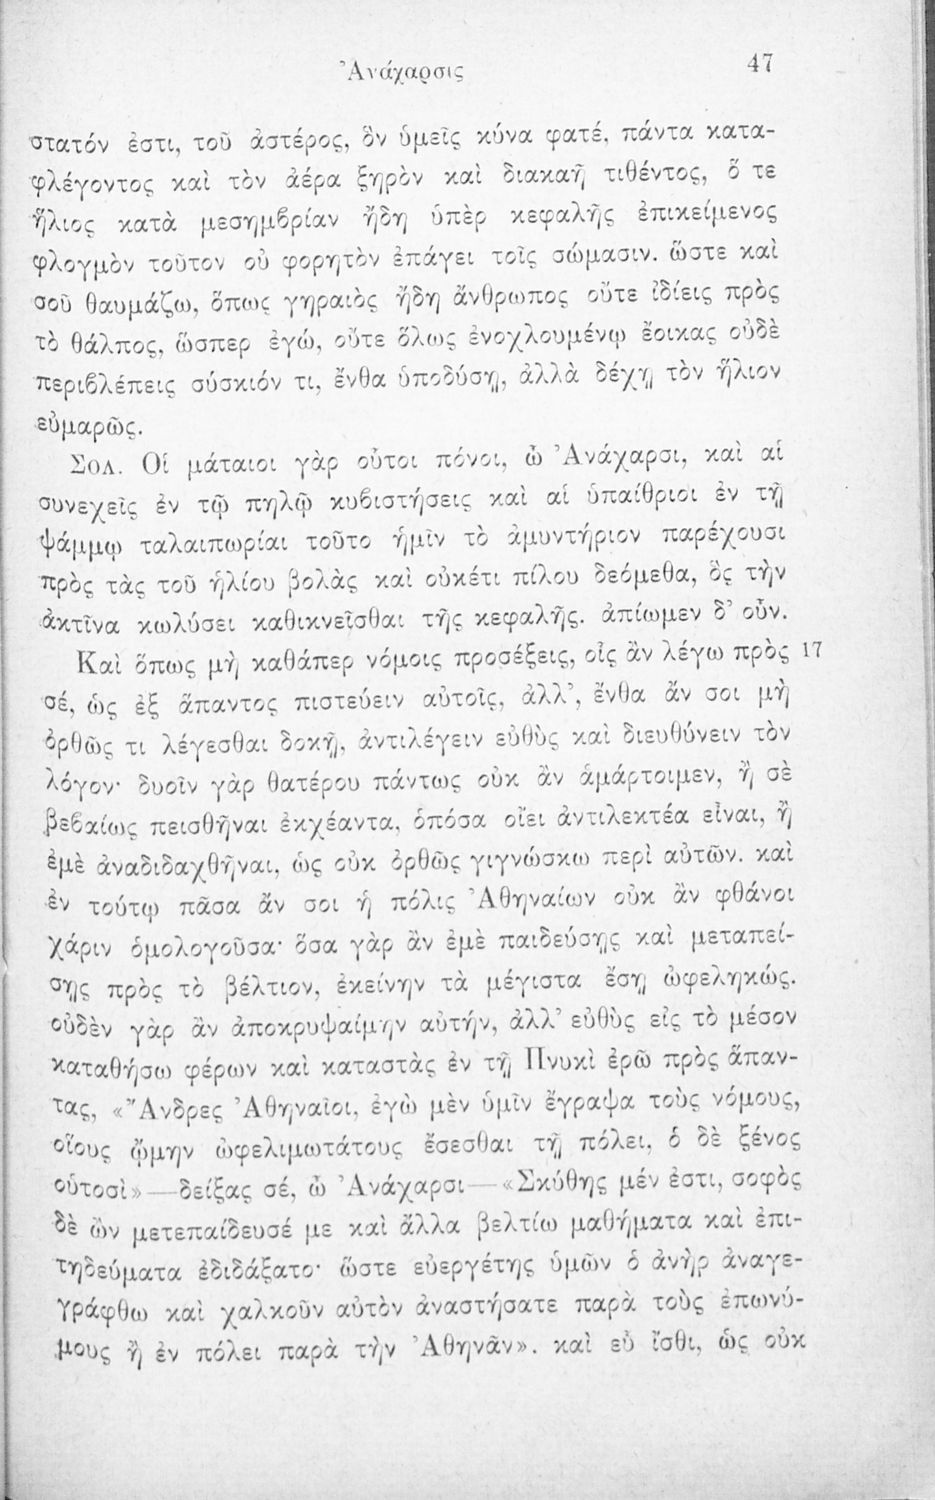 Ἀνάχαρσις 47
στατόν ἐστι, τοῦ ἀστέρος, ὃν ὑμεῖς κύνα φατέ, πάντα κατα-
φλέγοντος καὶ τὸν ἀέρα ξηρὸν καὶ διακαῆ τιθέντος, ὅ τε
ἥλιος κατὰ μεσημβρίαν ἤδη ὑπὲρ κεφαλῆς ἐπικείμενος
φλογμὸν τοῦτον οὐ φορητὸν ἐπάγει τοῖς σώμασιν. ὥστε καὶ
σοῦ θαυμάζω, ὅπως γηραιὸς ἤδη ἄνθρωπος οὔτε ἰδίεις πρὸς
τὸ θάλπος, ὥσπερ ἐγώ, οὔτε ὅλως ἐνοχλουμένῳ ἔοικας οὐδὲ
περιβλέπεις σύσκιόν τι, ἔνθα ὑποδύσῃ, ἀλλὰ δέχῃ τὸν ἥλιον
εὐμαρῶς.
Σολ. Οἱ μάταιοι γὰρ οὗτοι πόνοι, ὦ Ἀνάχαρσι, καὶ αἱ
συνεχεῖς ἐν τῷ πηλῷ κυβιστήσεις καὶ αἱ ὑπαίθριοι ἐν τῇ
ψάμμῳ ταλαιπωρίαι τοῦτο ἡμῖν τὸ ἀμυντήριον παρέχουσι
πρὸς τὰς τοῦ ἡλίου βολὰς καὶ οὐκέτι πίλου δεόμεθα, ὃς τὴν
ἀκτῖνα κωλύσει καθικνεῖσθαι τῆς κεφαλῆς. ἀπίωμεν δ’ οὖν.
Καὶ ὅπως μὴ καθάπερ νόμοις προσέξεις, οἷς ἂν λέγω πρὸς 17
σέ, ὡς ἐξ ἅπαντος πιστεύειν αὐτοῖς, ἀλλ’, ἔνθα ἄν σοι μὴ
ὀρθῶς τι λέγεσθαι δοκῇ, ἀντιλέγειν εὐθὺς καὶ διευθύνειν τὸν
λόγον· δυοῖν γὰρ θατέρου πάντως οὐκ ἂν ἁμάρτοιμεν, ἢ σὲ
βεβαίως πεισθῆναι ἐκχέαντα, ὁπόσα οἴει ἀντιλεκτέα εἶναι, ἢ
ἐμὲ ἀναδιδαχθῆναι, ὡς οὐκ ὀρθῶς γιγνώσκω περὶ αὐτῶν. καὶ
ἐν τούτῳ πᾶσα ἄν σοι ἡ πόλις Ἀθηναίων οὐκ ἂν φθάνοι
χάριν ὁμολογοῦσα· ὅσα γὰρ ἂν ἐμὲ παιδεύσῃς καὶ μεταπεί-
σῃς πρὸς τὸ βέλτιον, ἐκείνην τὰ μέγιστα ἔσῃ ὠφεληκώς.
οὐδὲν γὰρ ἂν ἀποκρυψαίμην αὐτήν, ἀλλ’ εὐθὺς εἰς τὸ μέσον
καταθήσω φέρων καὶ καταστὰς ἐν τῇ Πνυκὶ ἐρῶ πρὸς ἅπαν-
τας, «Ἄνδρες Ἀθηναῖοι, ἐγὼ μὲν ὑμῖν ἔγραψα τοὺς νόμους,
οἵους ᾤμην ὠφελιμωτάτους ἔσεσθαι τῇ πόλει, ὁ δὲ ξένος
οὑτοσὶ» — δείξας σέ, ὦ Ἀνάχαρσι — «Σκύθης μέν ἐστι, σοφὸς
δὲ ὢν μετεπαίδευσέ με καὶ ἄλλα βελτίω μαθήματα καὶ ἐπι-
τηδεύματα ἐδιδάξατο· ὥστε εὐεργέτης ὑμῶν ὁ ἀνὴρ ἀναγε-
γράφθω καὶ χαλκοῦν αὐτὸν ἀναστήσατε παρὰ τοὺς ἐπωνύ-
μους ἢ ἐν πόλει παρὰ τὴν Ἀθηνᾶν». καὶ εὖ ἴσθι, ὡς οὐκ